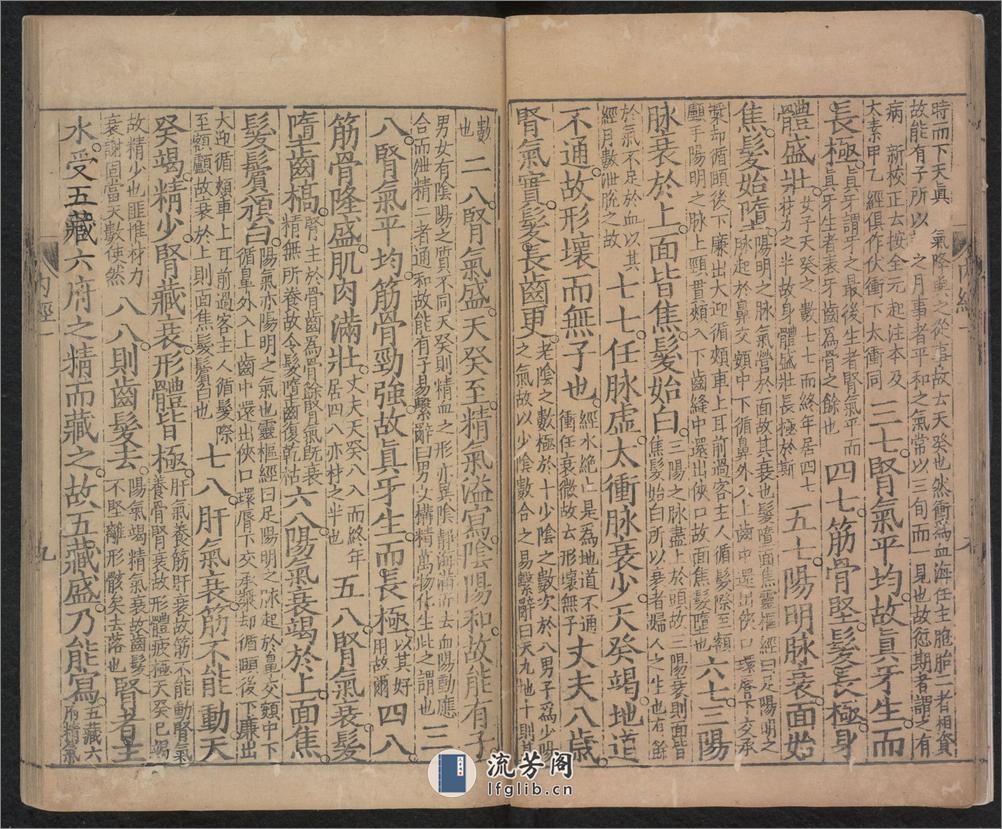 時而下天真氣降與之從事故云天癸也然衝為血海任主胞胎二者相資
故能有子所以謂之月事者平和之氣常以三旬而一見也故愆期者謂之有
病 新校正云按全元起注本及
大素甲乙經俱作伏衝下太衝同
三七腎氣平均故眞牙生而
長極
眞牙謂牙之最後生者腎氣平而
眞牙生者表牙齒為骨之餘也
四七筋骨堅髮長極身
體盛壯
女子天癸之數七七而終年居四七
材力之半故身體盛壯長極於斯
五七陽明脉衰面始
焦髮始墮
陽明之脉氣營於面故其衰也髮墮面焦靈樞經曰足陽明之
脉起於鼻交頞中下循鼻外入上齒中還出俠口環脣下交承
漿却循頤後下廉出大迎循頰車上耳前過客主人循髮際至額
顱手陽明之脉上頸貫頰入下齒縫中還出俠口故面焦髮墮也
六七三陽
脉衰於上面皆焦髮始白
三陽之脉盡上於頭故三陽衰則面皆
焦髮始白所以衰者婦人之生也有餘
於氣不足於血以其
經月數泄脫之故
七七任脉虛太衝脉衰少天癸竭地道
不通故形壞而無子也
經水絶止是為地道不通
衝任衰微故云形壞無子
丈夫八歲
腎氣實髮長齒更
老陰之數極於十少陰之數次於八男子為少陽
之氣故以少陰數合之易繫辭曰天九地十則其
數
也
二八腎氣盛天癸至精氣溢寫陰陽和故能有子
男女有陰陽之質不同天癸則精血之形亦異陰靜海滿而去血陽動應
合而泄精二者通和故能有子易繫辭曰男女構精萬物化生此之謂也
三
八腎氣平均筋骨勁強故眞牙生而長極
以其好
用故爾
四八
筋骨隆盛肌肉滿壯
丈夫天癸八八而終年
居四八亦材之半也
五八腎氣衰髮
墮齒槁
腎主於骨齒為骨餘腎氣旣衰
精無所養故令髮墮齒復乾枯
六八陽氣衰竭於上面焦
髮鬢頒白
陽氣亦陽明之氣也靈樞經曰足陽明之脉起於鼻交頞中下
循鼻外入上齒中還出俠口環脣下交承漿却循頤後下廉出
大迎循頰車上耳前過客主人循髮際
至額顱故衰於上則面焦髮鬢白也
七八肝氣衰筋不能動天
癸竭精少腎藏衰形體皆極
肝氣養筋肝衰故筋不能動腎氣
養骨腎衰故形體疲極天癸已竭
故精少也匪惟材力
衰謝固當天數使然
八八則齒髮去
陽氣竭精氣衰故齒髮
不堅離形骸矣去落也
腎者主
水受五藏六府之精而藏之故五藏盛乃能寫
五藏六
府精氣
內經一
九
流芳阁
lfglib.cn